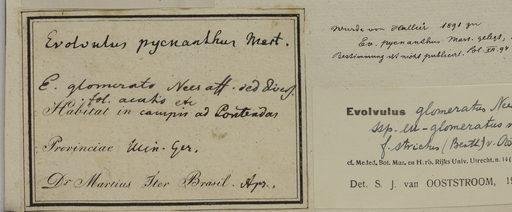 Evolvulus pycnanthus Mart.
E. glomerato Nees aff. sed divers.
fol. acutis etc
Habitat in campis ad Contendas
Provinciae Min. Ger.
Dr Martius Iter Brasil. Apr.
Wurde von Hallier 1891 zu
Ev. pycnanthus Mart. gelegt,
Bestimmung ist nicht publicirt.
Evolvulus glomeratus Nees
ssp. eu-glomeratus
f. strictus (Benth) v. Oo
cf. Meded. Bot. Mus. en Herb. Rijks Univ. Utrecht. n. 14 (
Det. S. J. van OOSTSTROOM, 19